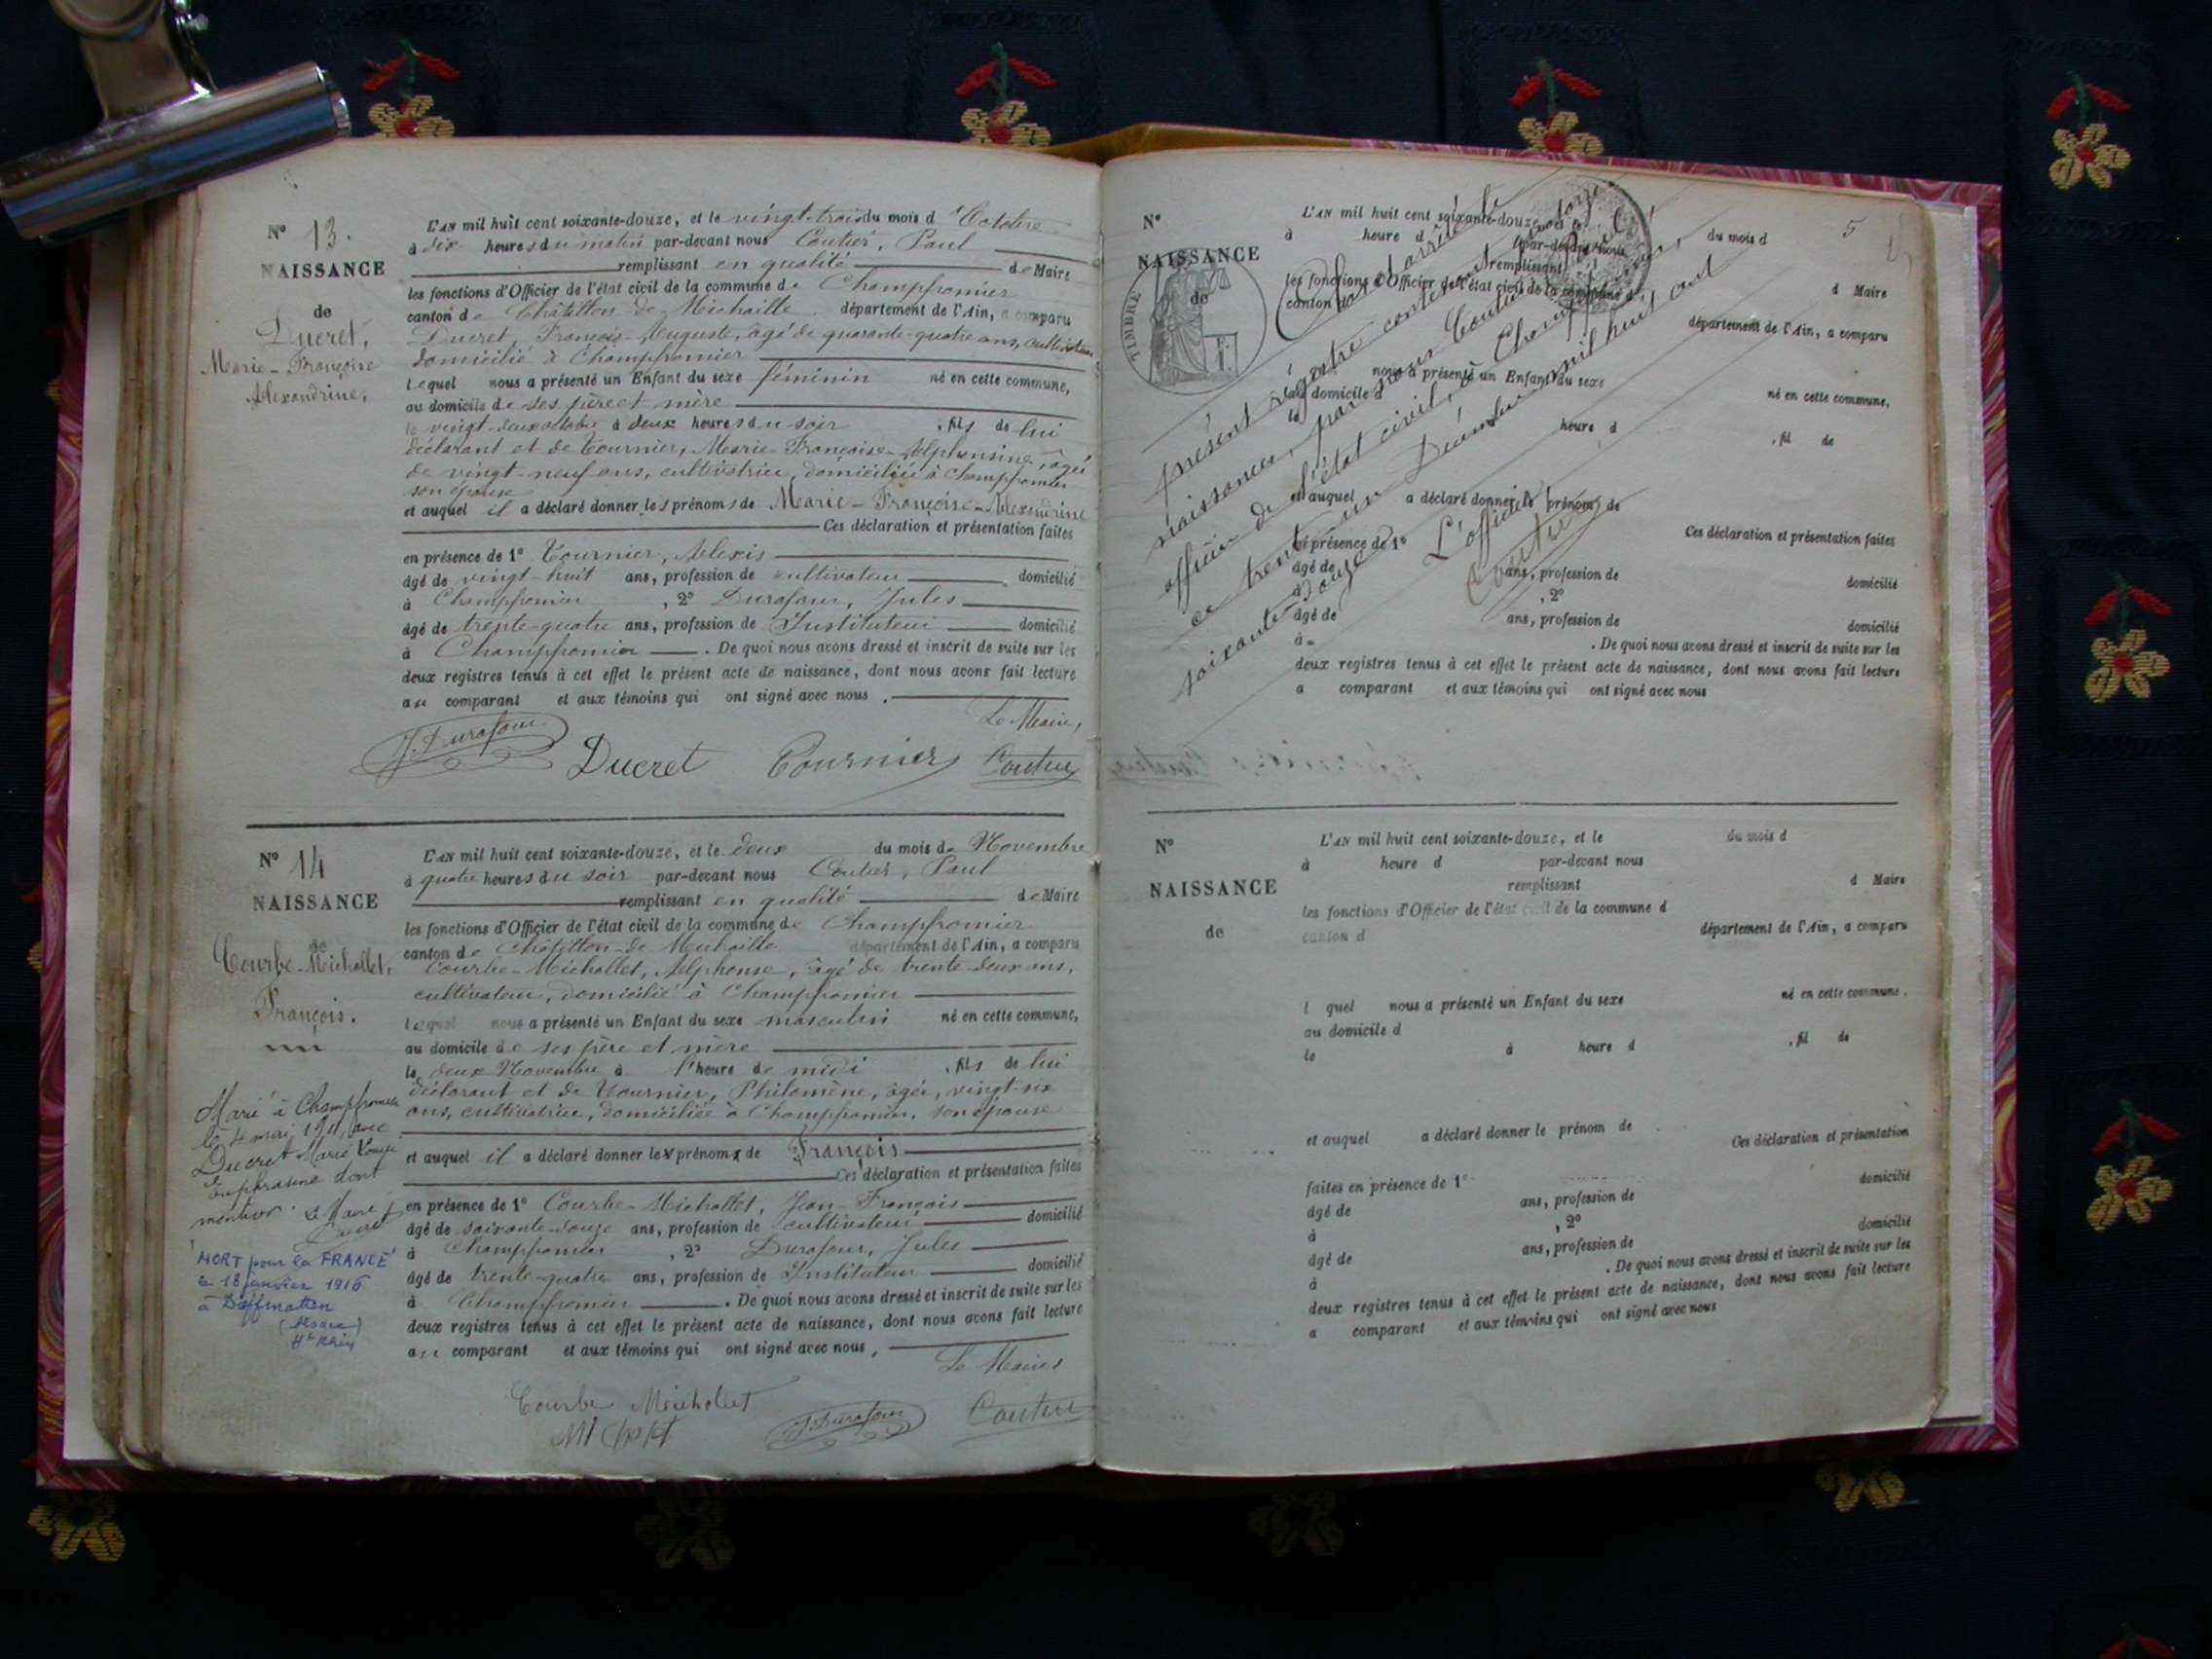 N° 13.
NAISSANCE
de
Ducret,
Marie-Françoise
Alexandrine,
L'AN mil huit cent soixante-douze, et le vingt-trois du mois d'Octobre
à dix heures du matin par-devant nous Coutier, Paul
remplissant en qualité de Maire
les fonctions d'Officier de l'état civil de la commune de Champfromier
canton de Châtillon-de-Michaille département de l'Ain, a comparu
Ducret, François-Auguste, âgé de quarante-quatre ans, cultivateur
domicilié à Champfromier
lequel nous a présenté un Enfant du sexe féminin né en cette commune,
au domicile de ses père et mère
le vingt-deux octobre à deux heures du soir, fils de lui
déclarant et de Tournier, Marie-Françoise-Alphonsine, âgée
de vingt-neuf ans, cultivatrice, domiciliée à Champfromier
son épouse
et auquel il a déclaré donner les prénoms de Marie-Françoise-Alexandrine
Ces déclaration et présentation faites
en présence de 1° Tournier, Alexis
âgé de vingt-huit ans, profession de cultivateur domicilié
à Champfromier, 2° Durafour, Jules
âgé de trente-quatre ans, profession de Instituteur domicilié
à Champfromier. De quoi nous avons dressé et inscrit de suite sur les
deux registres tenus à cet effet le présent acte de naissance, dont nous avons fait lecture
au comparant et aux témoins qui ont signé avec nous.
Le Maire,
J. Durafour Ducret Tournier Coutier
N° 14
NAISSANCE
de
Courbe-Michollet,
François.
Marié à Champfromier
le 4 mai 1911 avec
Ducret Marie Louise
Euphrasine dont
mention. Le Maire
Ducret
MORT pour la FRANCE
le 18 janvier 1916
à Dieffmatten
(Alsace)
Ht Rhin
L'AN mil huit cent soixante-douze, et le deux du mois de Novembre
à quatre heures du soir par-devant nous Coutier, Paul
remplissant en qualité de Maire
les fonctions d'Officier de l'état civil de la commune de Champfromier
canton de Châtillon-de-Michaille département de l'Ain, a comparu
Courbe-Michollet, Alphonse, âgé de trente-deux ans,
cultivateur, domicilié à Champfromier
lequel nous a présenté un Enfant du sexe masculin né en cette commune,
au domicile de ses père et mère
le deux Novembre à l'heure de midi, fils de lui
déclarant et de Tournier, Philomène, âgée, vingt-six
ans, cultivatrice, domiciliée à Champfromier, son épouse
et auquel il a déclaré donner les prénoms de François
Ces déclaration et présentation faites
en présence de 1° Courbe-Michollet, Jean-François
âgé de soixante-douze ans, profession de cultivateur domicilié
à Champfromier, 2° Durafour, Jules
âgé de trente-quatre ans, profession de Instituteur domicilié
à Champfromier. De quoi nous avons dressé et inscrit de suite sur les
deux registres tenus à cet effet le présent acte de naissance, dont nous avons fait lecture
au comparant et aux témoins qui ont signé avec nous,
Le Maire
Courbe Michollet
J. Durafour Coutier
5
N°
NAISSANCE
de
TIMBRE
L'AN mil huit cent soixante-douze
du mois d
à heure d par-devant nous
remplissant
d Maire
les fonctions d'Officier de l'état civil de la commune d
canton d
département de l'Ain, a comparu
nous a présenté un Enfant du sexe
né en cette commune,
au domicile d
le
heure d
, fil de
et auquel a déclaré donner le prénom de
Ces déclaration et présentation faites
en présence de 1°
âgé de ans, profession de domicilié
à , 2°
âgé de ans, profession de domicilié
à . De quoi nous avons dressé et inscrit de suite sur les
deux registres tenus à cet effet le présent acte de naissance, dont nous avons fait lecture
a comparant et aux témoins qui ont signé avec nous
Clos et arrêté le
présent registre contenant quatorze
naissances, par nous Coutier Paul,
officier de l'état civil, à Champfromier,
ce trente-un Décembre mil huit cent
soixante-douze.
L'officier
Coutier
N°
NAISSANCE
de
L'AN mil huit cent soixante-douze, et le du mois d
à heure d par-devant nous
remplissant d Maire
les fonctions d'Officier de l'état civil de la commune d
canton d département de l'Ain, a comparu
l quel nous a présenté un Enfant du sexe né en cette commune,
au domicile d
le à heure d , fil de
et auquel a déclaré donner le prénom de
Ces déclaration et présentation
faites en présence de 1°
âgé de ans, profession de domicilié
à , 2°
âgé de ans, profession de domicilié
à . De quoi nous avons dressé et inscrit de suite sur les
deux registres tenus à cet effet le présent acte de naissance, dont nous avons fait lecture
a comparant et aux témoins qui ont signé avec nous